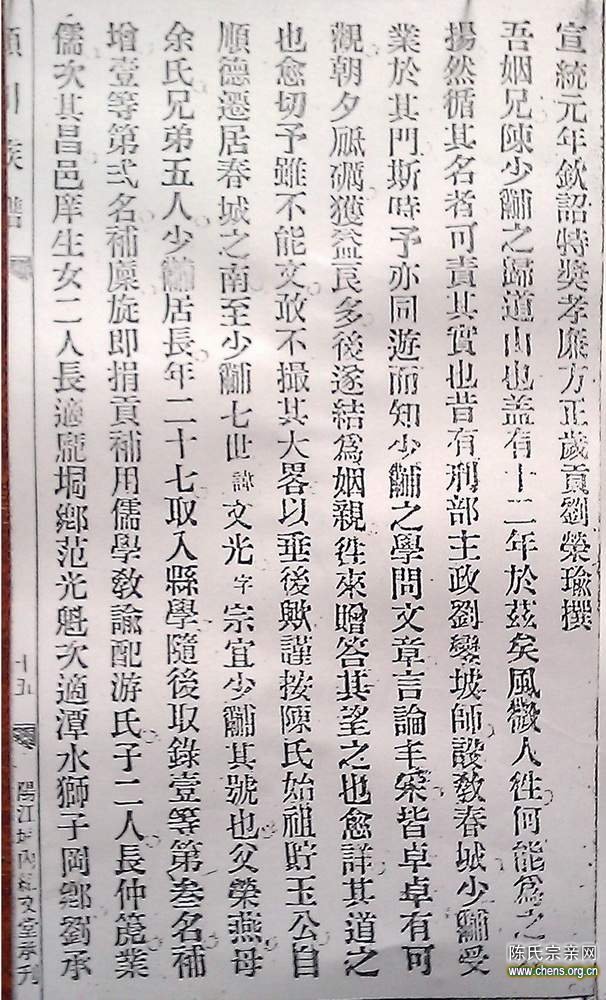 宣統元年欽詔特奬孝廉方正歲貢劉榮瑜撰
吾姻兄陳少黼之歸道山也盖有十二年於茲矣風微人徃何能爲之
揚然循其名者可責其實也昔有刑部主政劉鑾坡師設敎春城少黼受
業於其門斯時予亦同遊而知少黼之學問文章言論丰案皆卓卓有可
觀朝夕砥礪獲益良多後遂結爲姻親徃來贈答其望之也愈詳其道之
也愈切予雖不能文敢不撮其大畧以垂後歟謹按陳氏始祖貯玉公自
順德遷居春城之南至少黼七世諱文光字宗宜少黼其號也父榮燕母
余氏兄弟五人少黼居長年二十七取入縣學隨後取錄壹等第叁名補
增壹等第弍名補廩旋即捐貢補用儒學敎諭配游氏子二人長仲箎業
儒次其昌邑庠生女二人長適龐垌鄉范光魁次適潭水獅子岡鄉劉承
族譜
十五
陽江城內 文堂承刋
陈氏宗亲网
www.chens.org.cn